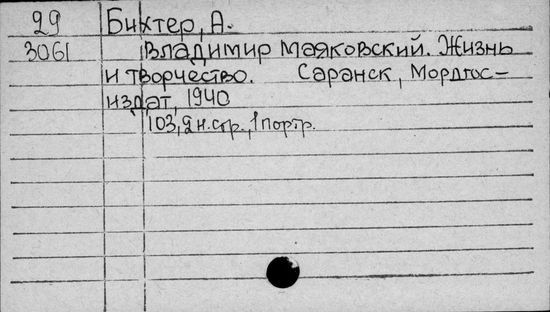 29 Бихтер, А.
3061 Владимир Маяковский. Жизнь
и творчество. Саранск, Мордгос-
издат, 1940
103, 2 н. стр., 1 портр.